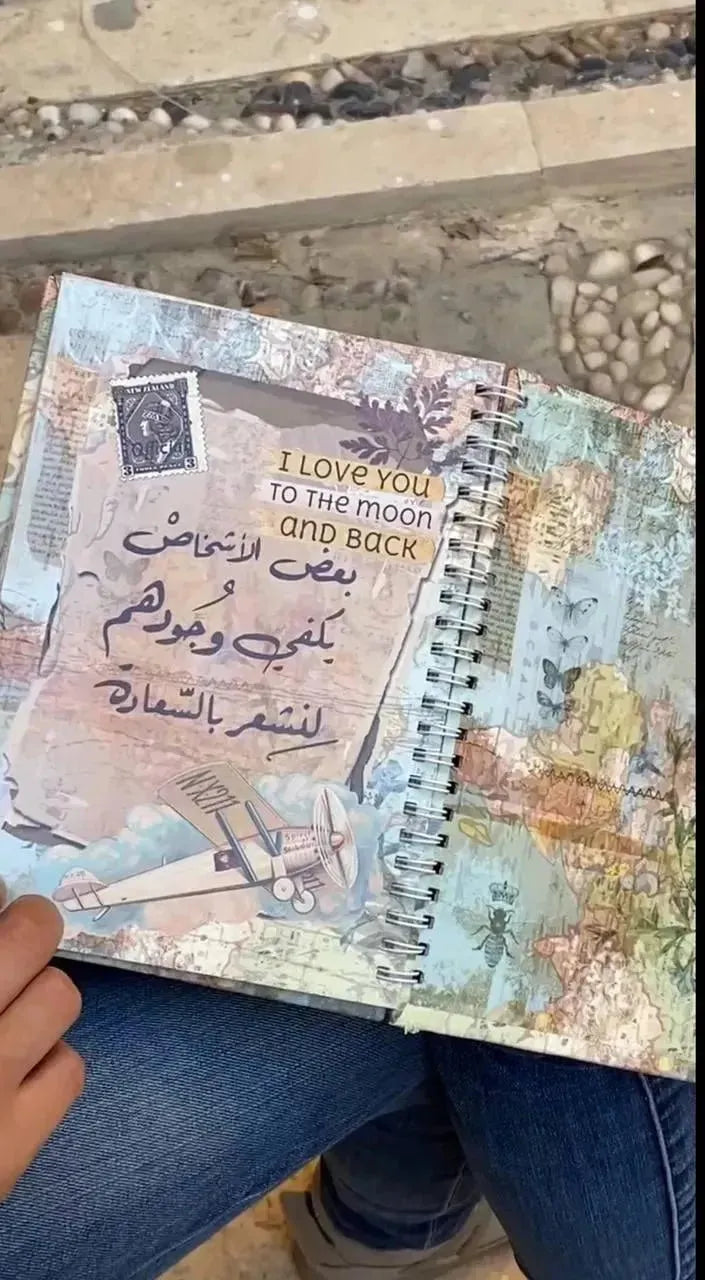 NEW ZEALAND
3 3
I LOVE YOU
TO THE MOON
AND BACK
بعض الأشخاصْ
يكفي وجُودهم
لِنشعر بالسّعادة
NX211